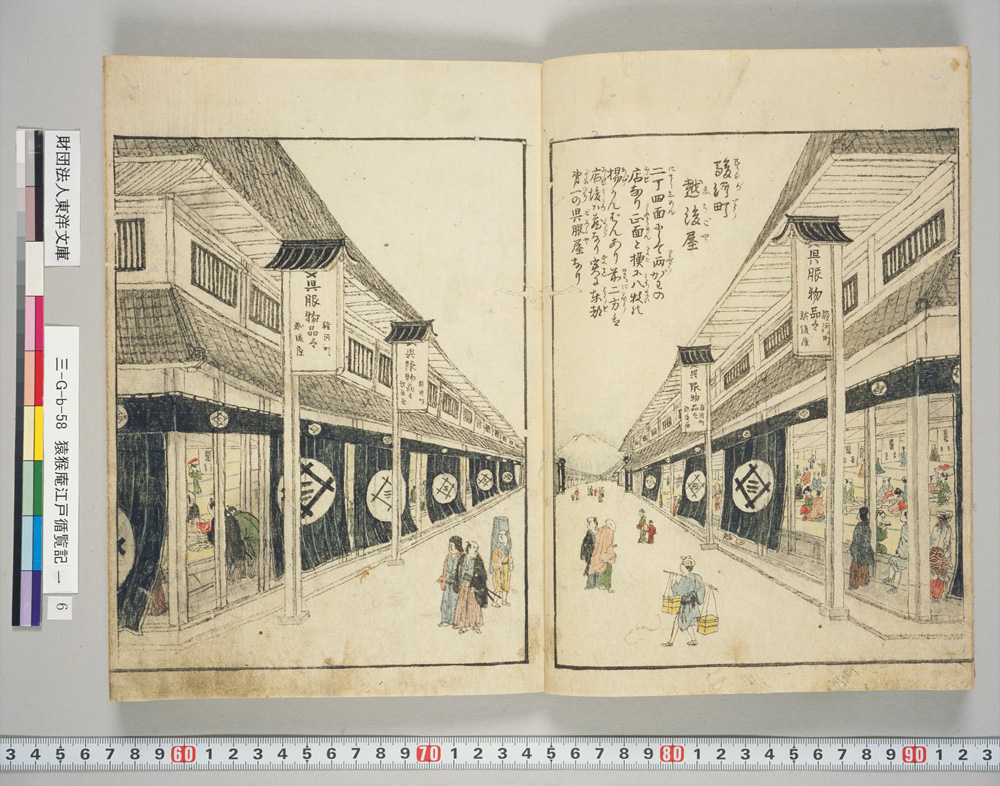 財団法人東洋文庫
三-G-b-58 猿猴庵江戸循覧記 一
6
駿河町
越後屋
二丁四面にして両がわの
店なり正面と横に八枚の
揚かんばんあり
店後に蔵あり
第一の呉服屋なり
呉服物品々
駿河町
越後屋
呉服物品々
駿河町
越後屋
呉服物品々
駿河町
越後屋
呉服物品々
3 4 5 6 7 8 9 60 1 2 3 4 5 6 7 8 9 70 1 2 3 4 5 6 7 8 9 80 1 2 3 4 5 6 7 8 9 90 1 2 3